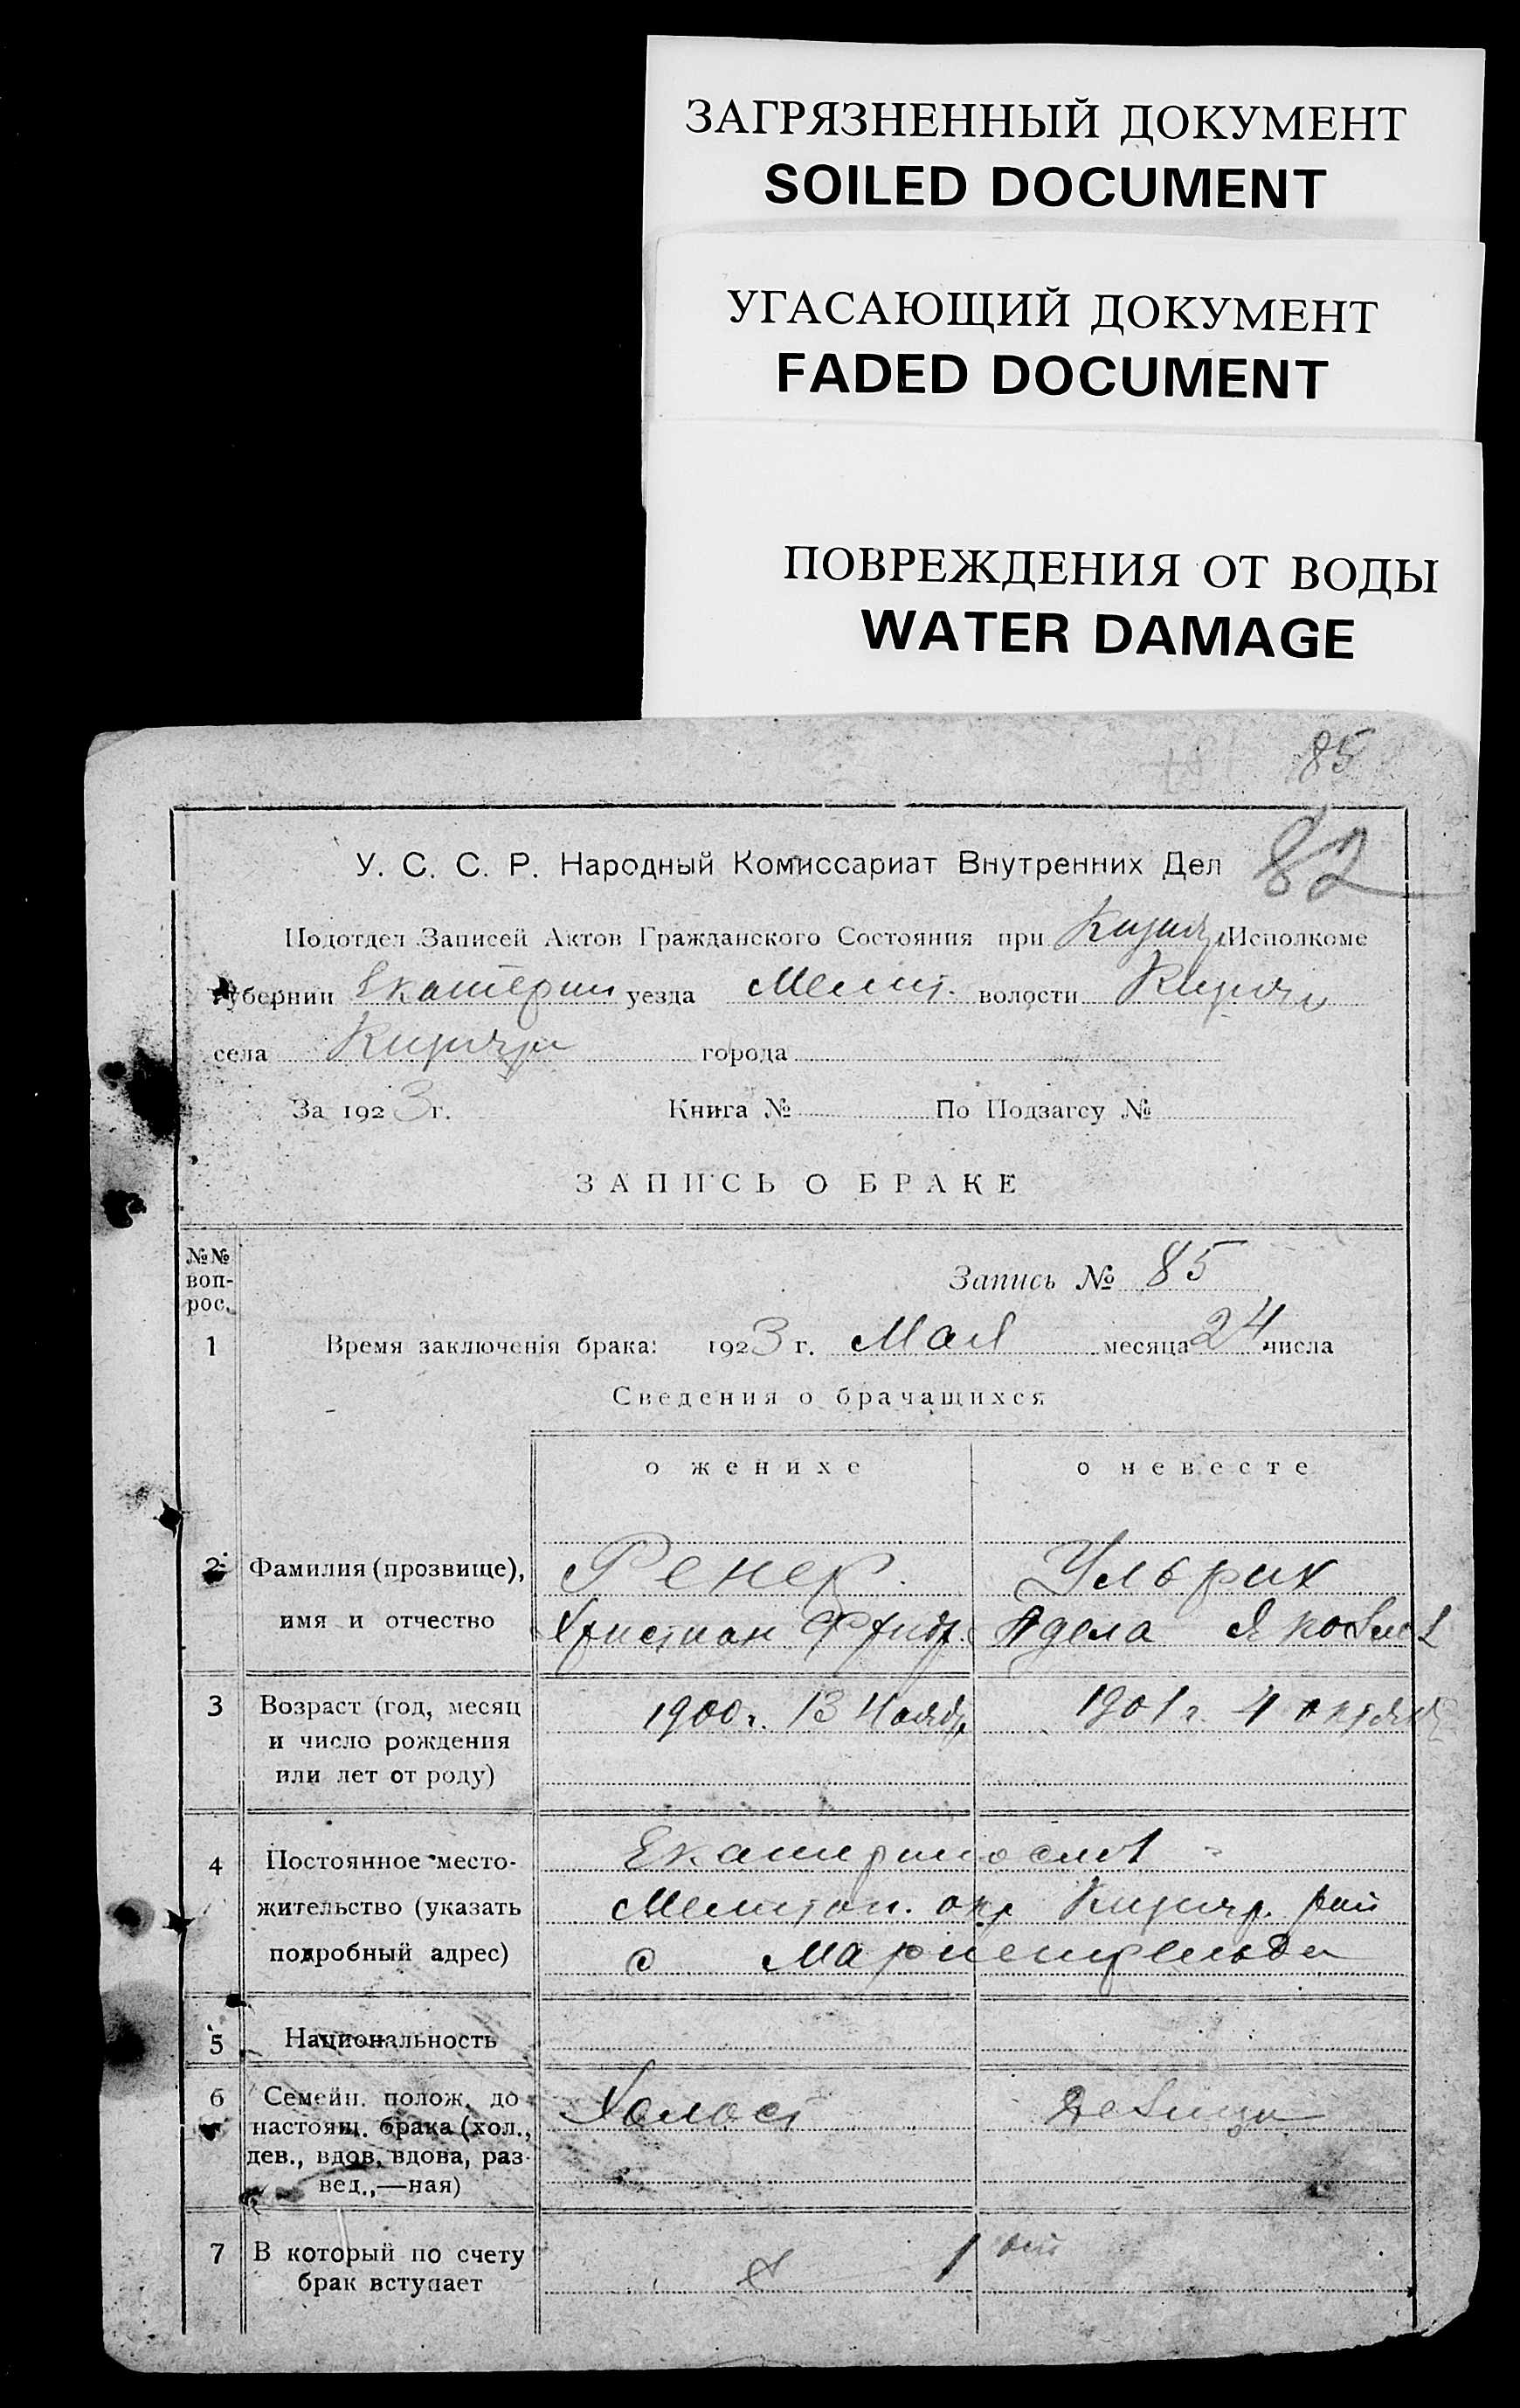 ЗАГРЯЗНЕННЫЙ ДОКУМЕНТ
SOILED DOCUMENT
УГАСАЮЩИЙ ДОКУМЕНТ
FADED DOCUMENT
ПОВРЕЖДЕНИЯ ОТ ВОДЫ
WATER DAMAGE
85
82
У. С. С. Р. Народный Комиссариат Внутренних Дел
Подотдел Записей Актов Гражданского Состояния при Исполкоме
Губернии Екатерин уезда Мелит. волости
села города
За 1923 г. Книга № По Подзагсу №
ЗАПИСЬ О БРАКЕ
№№ воп-
рос.
Запись № 85
1 Время заключенія брака: 1923 г. Мая месяца 24 числа
Сведения о брачащихся
о женихе о невесте
2 Фамилия (прозвище), Ренер Ульрих
имя и отчество Христиан Фридр. Адела Яковлев
3 Возраст (год, месяц 1900 г. 13 Ноябр 1901 г. 4 октября
и число рождения
или лет от роду)
4 Постоянное место- Екатеринослав
жительство (указать Мелитоп. окр рай
подробный адрес) с Мариенфельда
5 Национальность
6 Семейн. полож. до Холост Девица
настоящ. брака (хол.,
дев., вдов, вдова, раз-
вед.,—ная)
7 В который по счету 1 ый
брак вступает